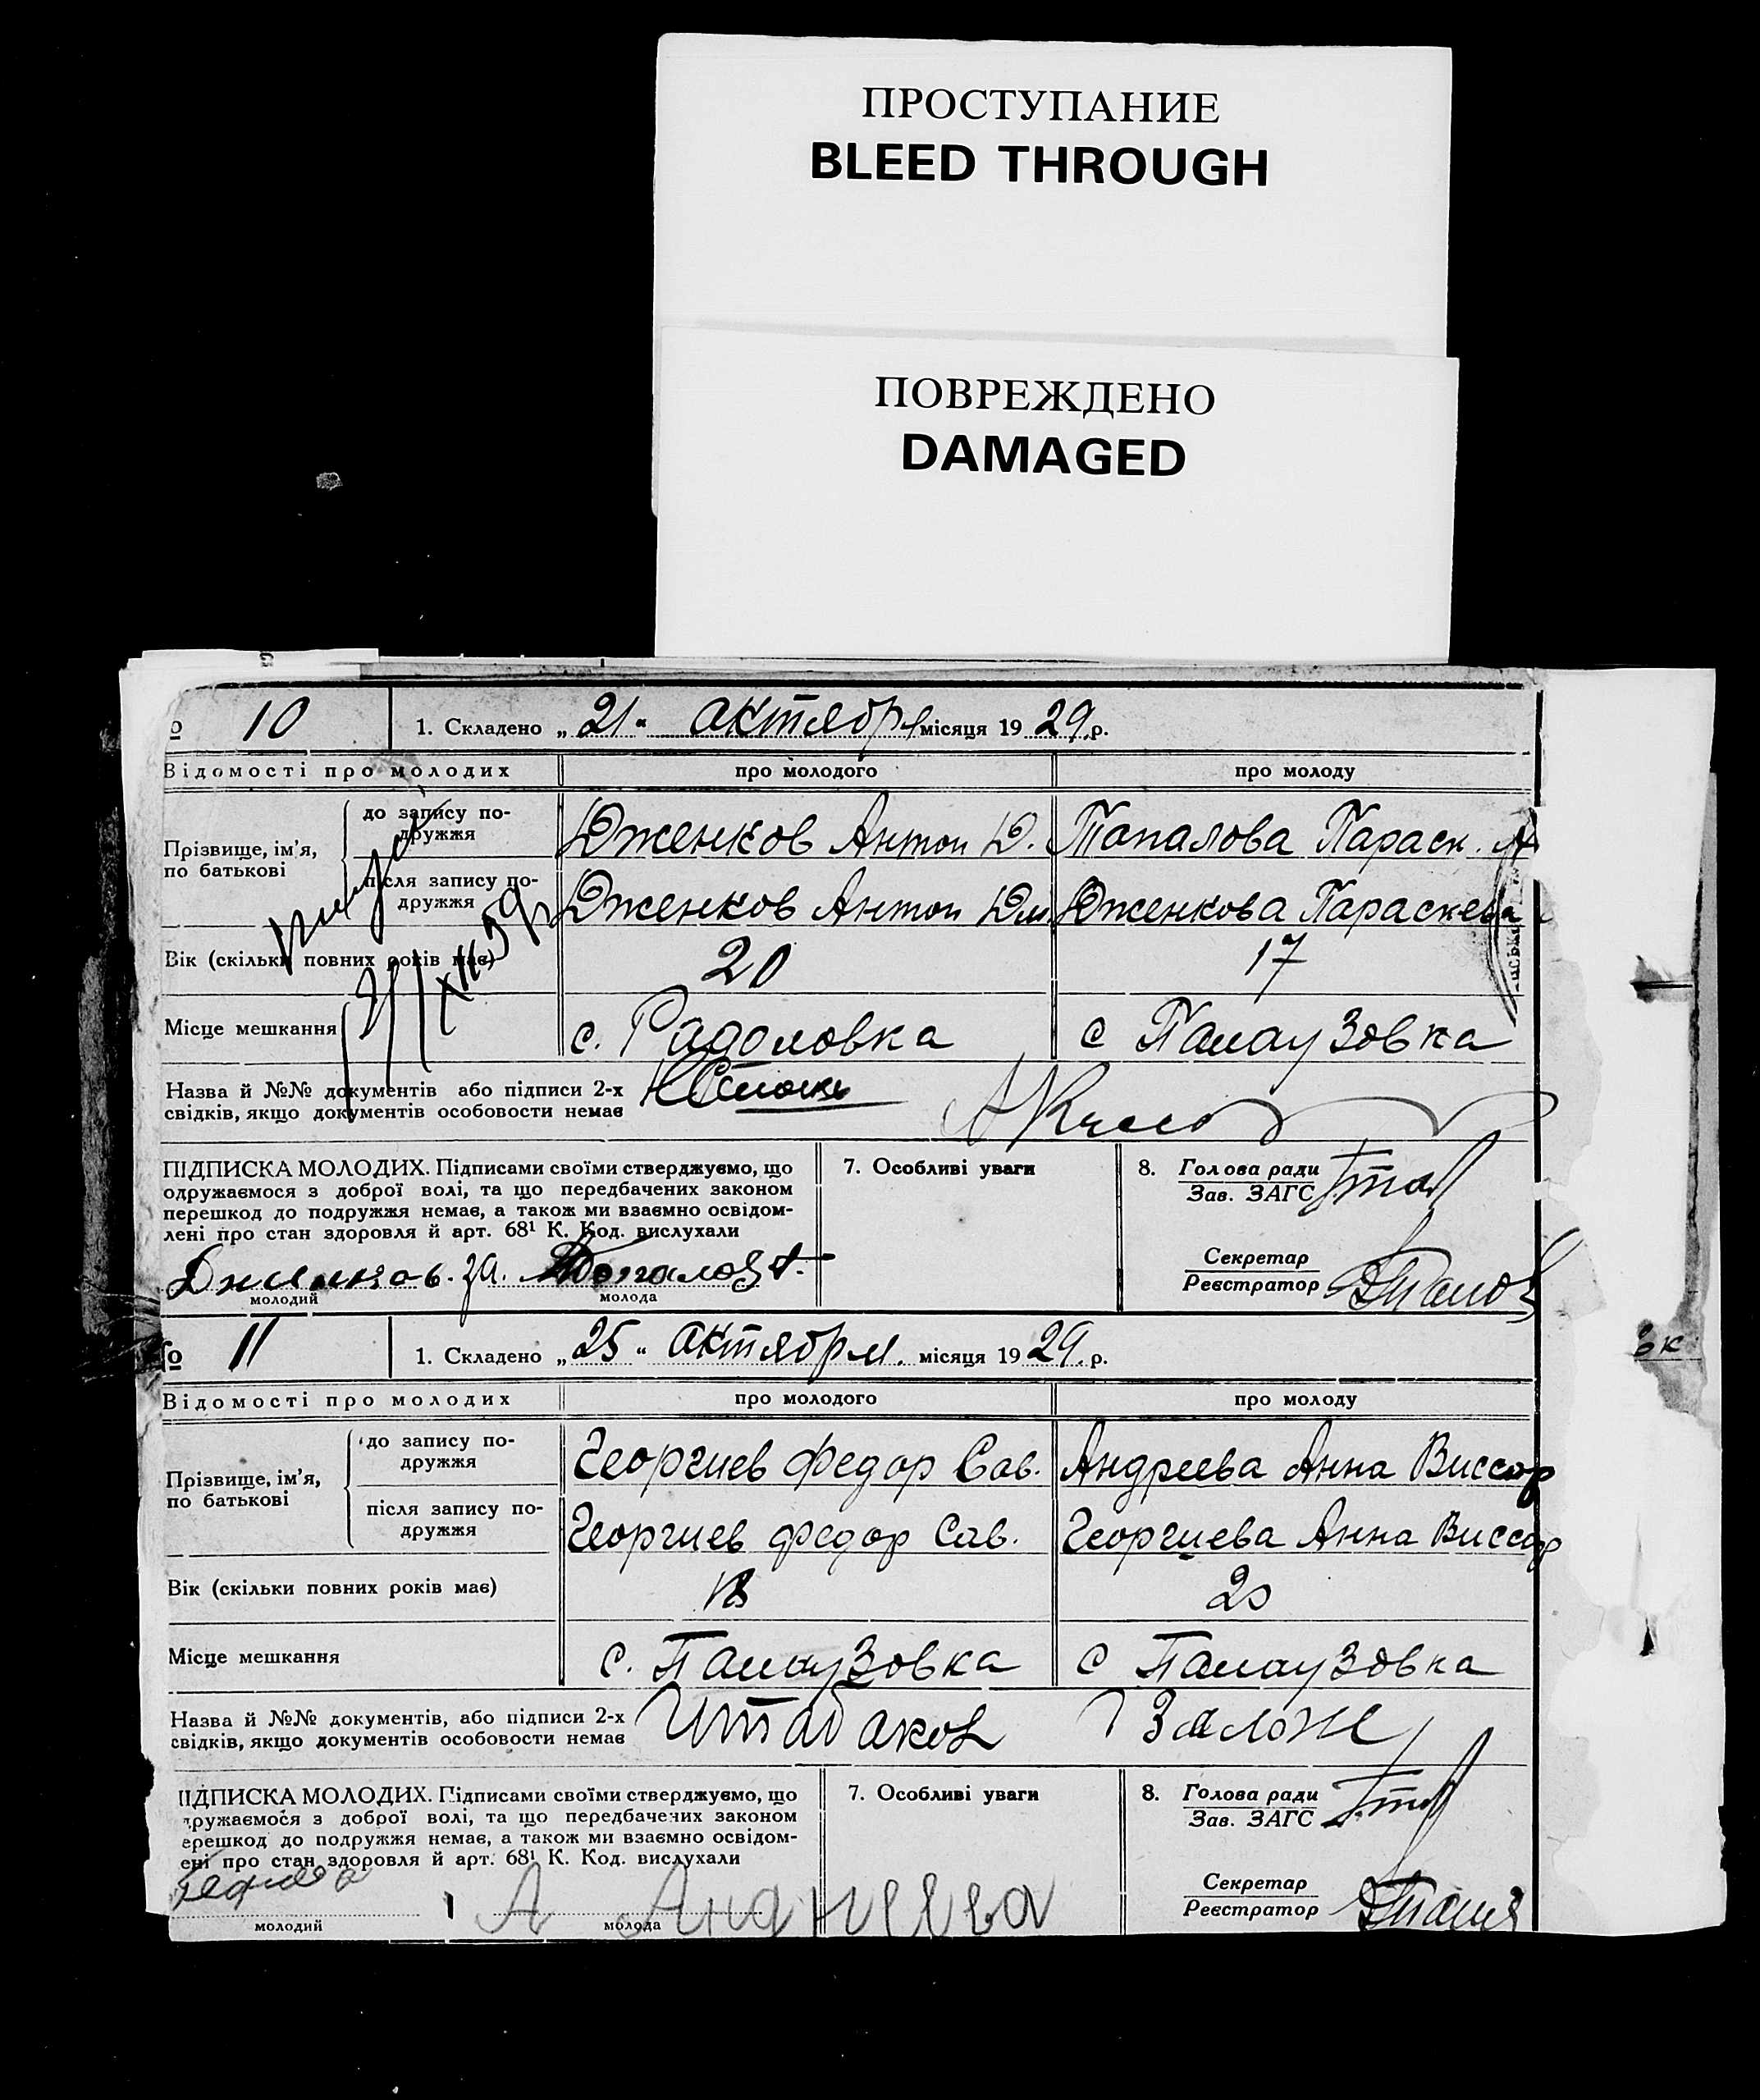 ПРОСТУПАНИЕ
BLEED THROUGH
ПОВРЕЖДЕНО
DAMAGED
№ 10 1. Складено „21" октября місяця 1929 р.
Відомості про молодих про молодого про молоду
Прізвище, ім'я, по батькові
до запису подружжя Дженков Антон Д. Топалова Параск. А
після запису подружжя Дженков Антон Дм. Дженкова Параскева
Вік (скільки повних років має) 20 17
Місце мешкання с. Радоловка с Палаузовка
Назва й №№ документів або підписи 2-х
свідків, якщо документів особовости немає
ПІДПИСКА МОЛОДИХ. Підписами своїми стверджуємо, що
одружаємося з доброї волі, та що передбачених законом
перешкод до подружжя немає, а також ми взаємно освідом-
лені про стан здоровля й арт. 68¹ К. Код. вислухали
7. Особливі уваги
8. Голова ради
Зав. ЗАГС
Секретар
Реєстратор
молодий молода
№ 11 1. Складено „25" октября місяця 1929 р.
Відомості про молодих про молодого про молоду
Прізвище, ім'я, по батькові
до запису подружжя Георгиев Федор Сав. Андреева Анна Виссар
після запису подружжя Георгиев Федор Сав. Георгиева Анна Виссар
Вік (скільки повних років має) 18 20
Місце мешкання с. Палаузовка с Палаузовка
Назва й №№ документів, або підписи 2-х
свідків, якщо документів особовости немає
Штабаков
ІДПИСКА МОЛОДИХ. Підписами своїми стверджуємо, що
дружаємося з доброї волі, та що передбачених законом
ерешкод до подружжя немає, а також ми взаємно освідом-
ені про стан здоровля й арт. 68¹ К. Код. вислухали
7. Особливі уваги
8. Голова ради
Зав. ЗАГС
Секретар
Реєстратор
А Андреева
молодий молода